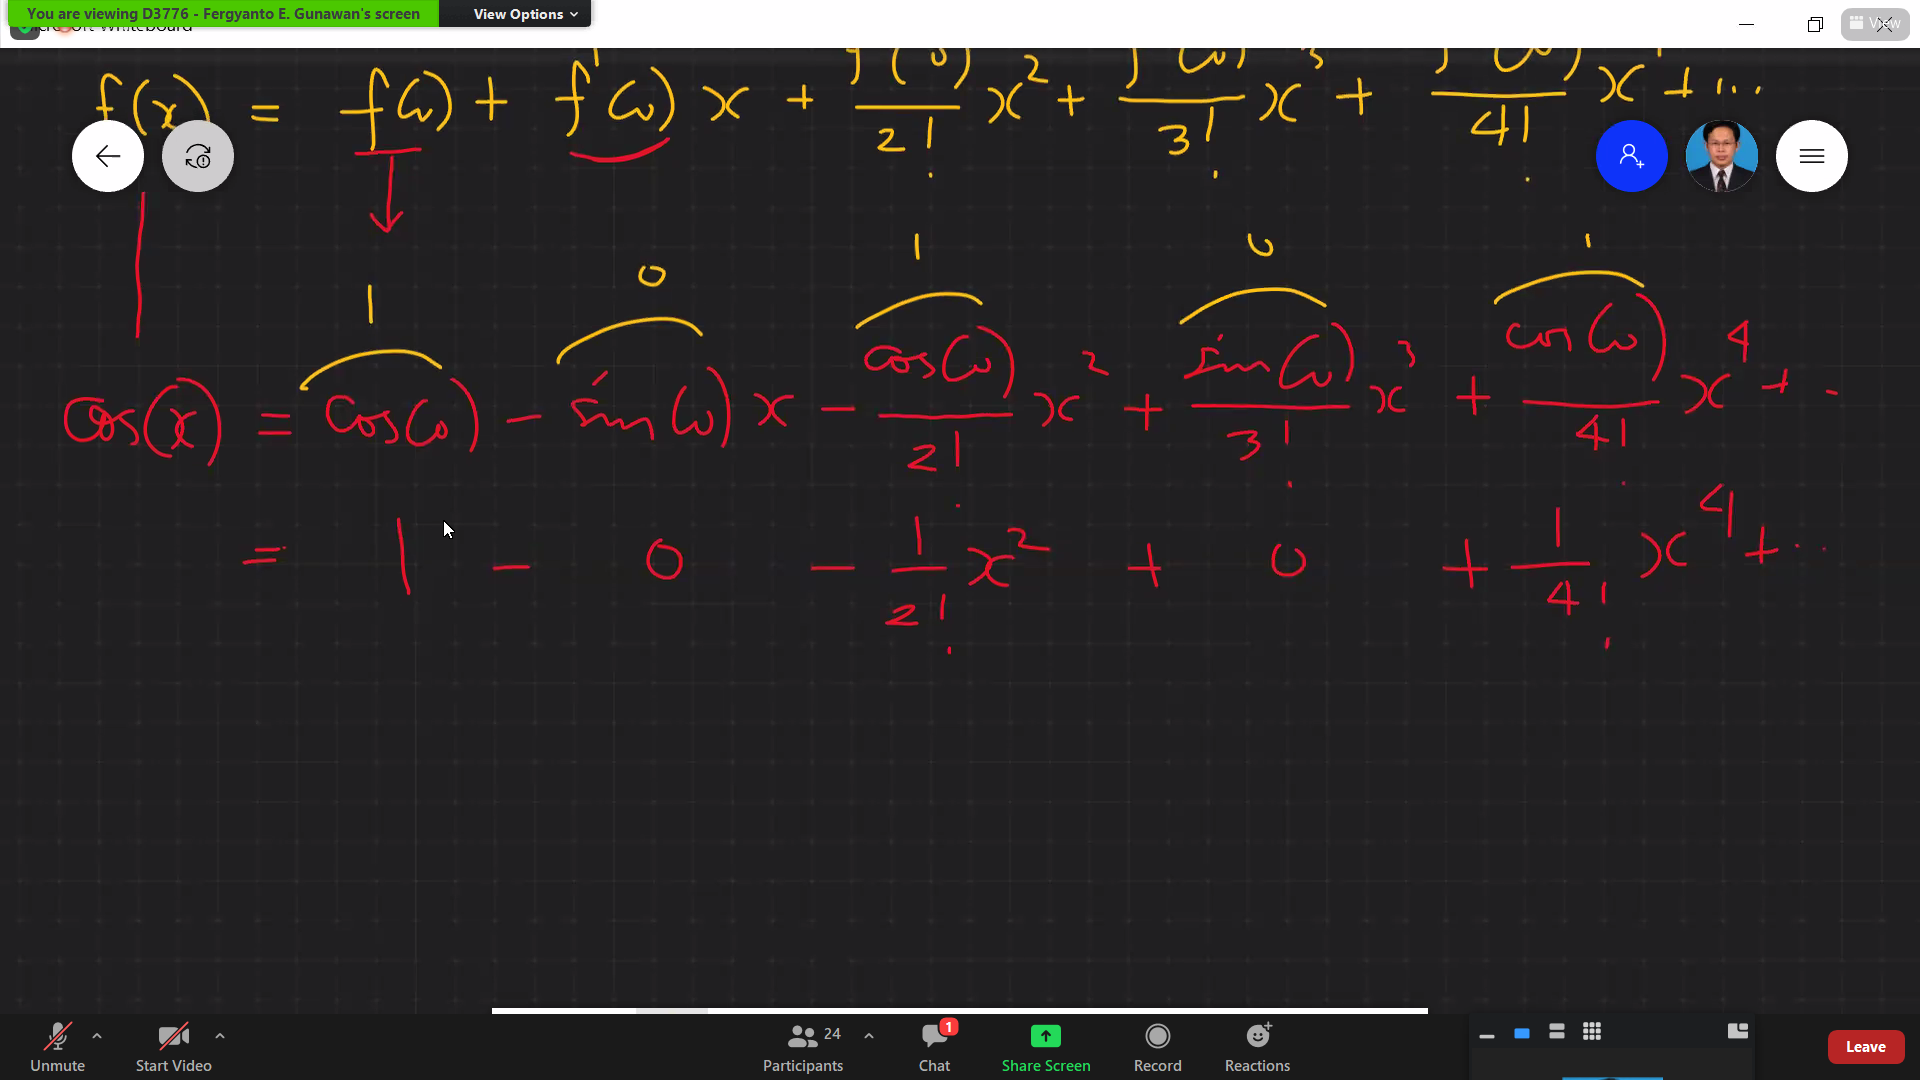 You are viewing D3776 - Fergyanto E. Gunawan's screen
View Options
View
f(x) = f(0) + f'(0) x + f''(0)/2! x² + f'''(0)/3! x³ + /4! x⁴ + ...
1 0 1 0 1
cos(x) = cos(0) - sin(0) x - cos(0)/2! x² + sin(0)/3! x³ + cos(0)/4! x⁴ + -
= 1 - 0 - 1/2! x² + 0 + 1/4! x⁴ + ...
Unmute
Start Video
24
Participants
1
Chat
Share Screen
Record
Reactions
Leave